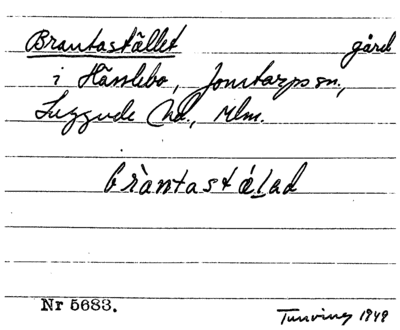 Brantastället gård
i Hässlebo, Jonstorps sn,
Luggude hd., Mlm.
bràntastálad
Nr 5683.
Tunving 1949